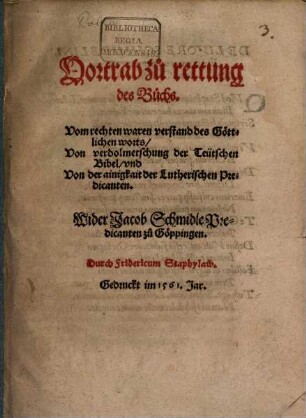 3.
BIBLIOTHECA
REGIA
MONACENSIS
Vortrab zů rettung
des Bůchs.
Vom rechten waren verstand des Gött-
lichen worts/
Von verdolmetschung der Teütschen
Bibel/vnd
Von der ainigkait der Lutherischen Pre-
dicanten.
Wider Jacob Schmidle Pre-
dicanten zů Göppingen.
Durch Fridericum Staphylum.
Gedruckt im 1561. Jar.